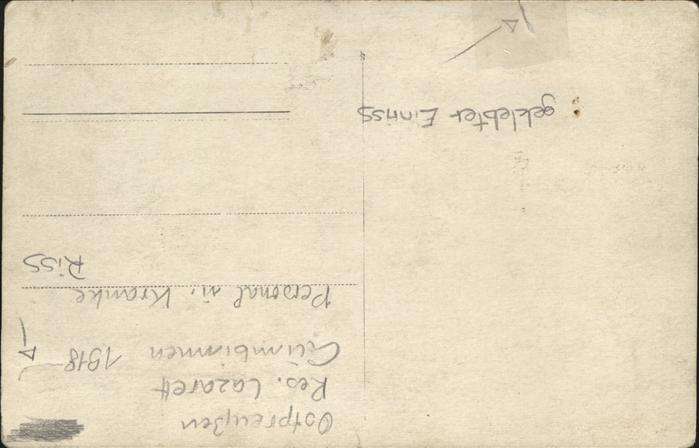 Ostpreußen
Res. Lazarett
Gumbinnen 1918
Personal u. Kranke
Riss
geklebter Einriss